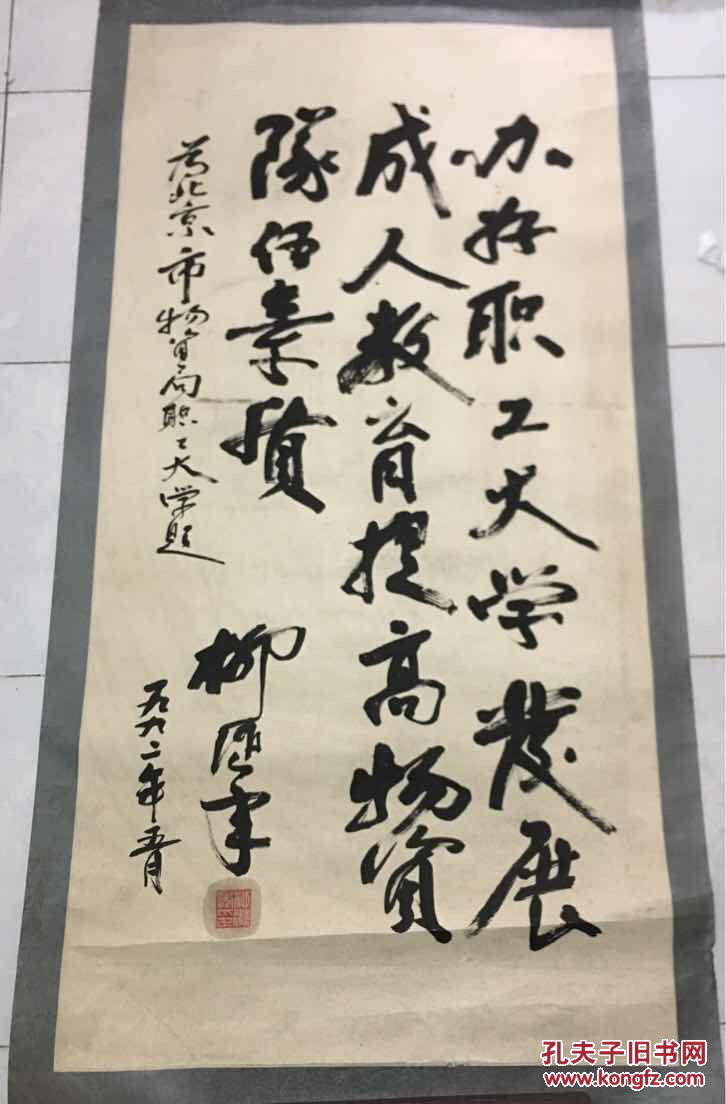 办好职工大学发展
成人教育提高物资
隊伍素质
为北京市物资局职工大学题
柳随年
一九九二年五月
孔夫子旧书网
www.kongfz.com